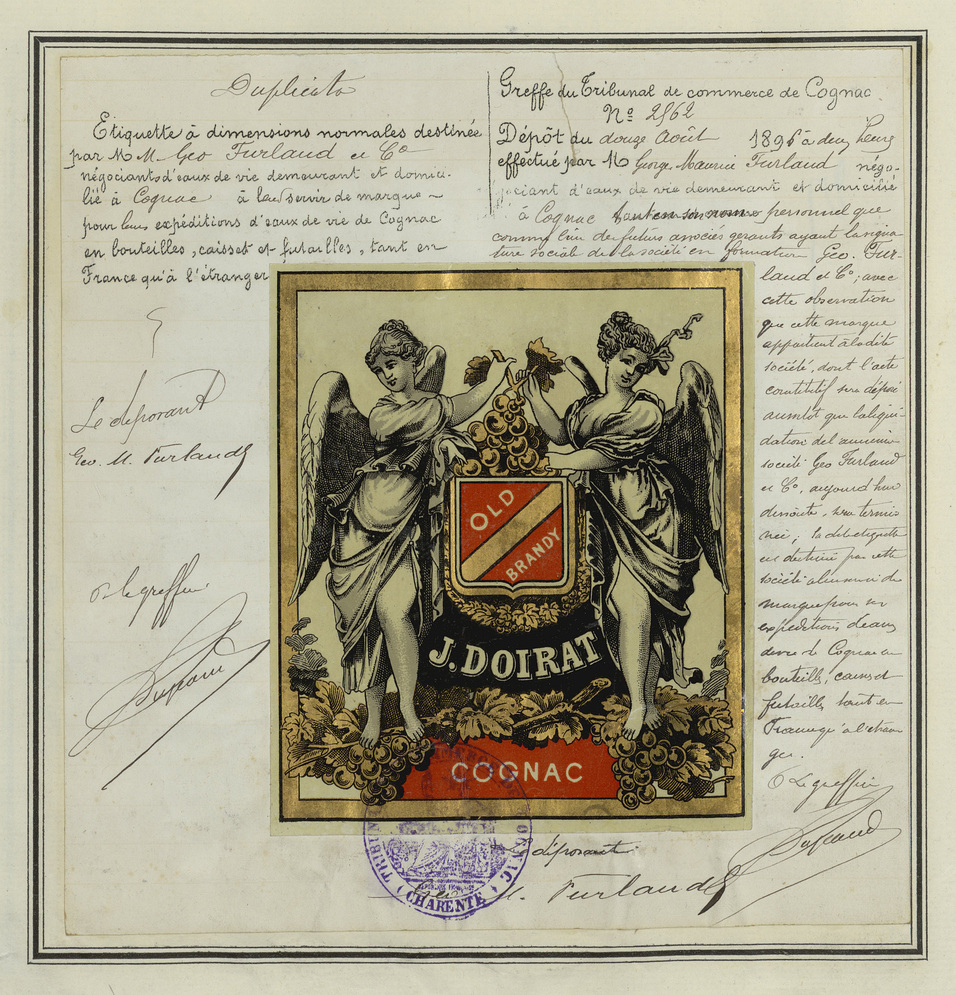 Duplicata
Etiquette à dimensions normales destinée
par MM. Geo Furlaud et Cº
négociants d'eaux de vie demeurant et domici-
lié à Cognac à servir de marque
pour leurs expéditions d'eaux de vie de Cognac
en bouteilles, caisses et futailles, tant en
France qu'à l'étranger
Le déposant
Geo. M. Furlaud
Le greffier
Greffe du Tribunal de commerce de Cognac
Nº 2962
Dépôt du douze Août 1896 à deux heures
effectué par M George Maurice Furlaud négo-
ciant d'eaux de vie demeurant et domicilié
à Cognac tant en son nom personnel que
comme l'un des futurs associés gérants ayant la signa-
ture sociale de la société en formation Geo. Fur-
laud et Cº; avec
cette observation
que cette marque
appartient à ladite
société, dont l'acte
constitutif sera déposé
aussitôt que la liqui-
dation de l'ancienne
société Geo Furlaud
et Cº, aujourd'hui
dissoute, sera termi-
née; ladite etiquette
est destinée par cette
société à lui servir de
marque pour ses
expéditions d'eaux
de vie de Cognac en
bouteilles, caisses et
futailles tant en
France qu'à l'étran-
ger.
Le greffier
OLD
BRANDY
J. DOIRAT
COGNAC
Le déposant
Geo. M. Furlaud
CHARENTE